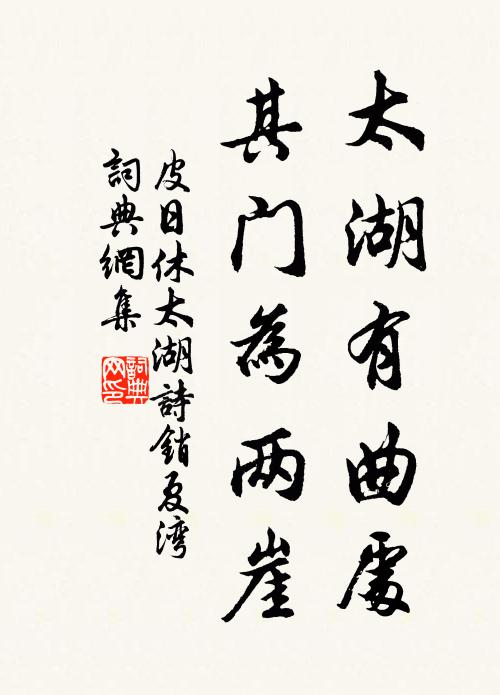 太湖有曲處
其门為两崖
皮日休太湖詩銷夏湾
詞典網集
詞典网印